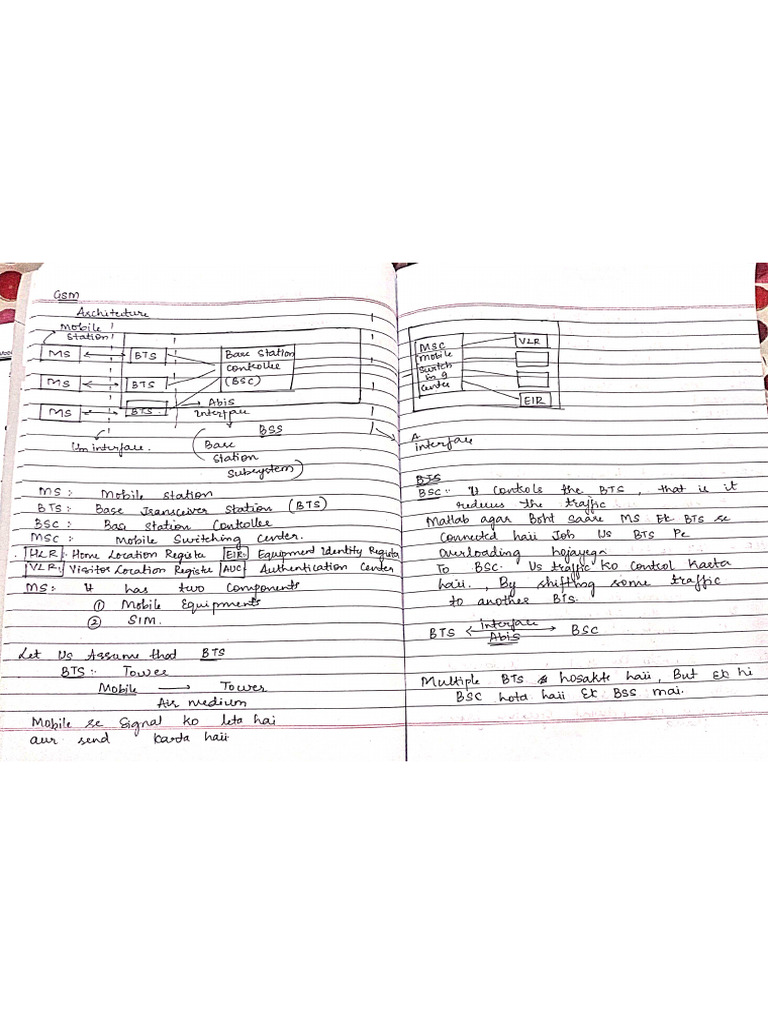 GSM
Architecture
Mobile
Station
MS
BTS
Base Station
Controller
(BSC)
MS
BTS
MS
BTS
Abis
interface
Um interface.
BSS
(Base
Station
Subsystem)
MS: Mobile Station
BTS: Base Transceiver Station (BTS)
BSC: Base Station Controller
MSC: Mobile Switching Center.
HLR: Home Location Registe EIR: Equipment Identity Registe
VLR: Visitor Location Registe AUC Authentication Center
MS: It has two Components
① Mobile Equipments
② SIM.
Let Us Assume that BTS
BTS:- Tower
Mobile → Tower
Air medium
Mobile se Signal ko leta hai
aur send karta haii
MSC
Mobile
Switch
in g
Center
VLR
EIR
A
interface
BTS
BSC:- It Controls the BTS, that is it
reduces the traffic
Matlab agar Boht Saare MS Ek BTS se
Connected haii Job Us BTS Pe
Overloading hojayega
To BSC. Us traffic ko Control Karta
haii., By shifting some traffic
to another BTS.
BTS ← interface → BSC
Abis
Multiple BTS hosakte haii, But Ek hi
BSC hota haii Ek BSS mai.